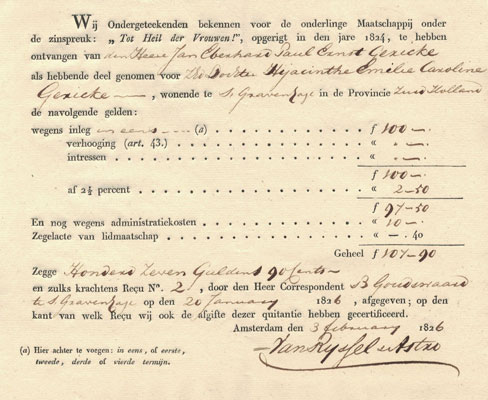 Wij Ondergeteekenden bekennen voor de onderlinge Maatschappij onder
de zinspreuk: „Tot Heil der Vrouwen!", opgerigt in den jare 1824, te hebben
ontvangen van den Heere Jan Eberhard Paul Ernst Gericke
als hebbende deel genomen voor Hijacinthe Emilie Caroline
Gericke —, wonende te s Gravenhage in de Provincie Zuid Holland
de navolgende gelden:
wegens inleg in eens (a) ƒ 100 —.
verhooging (art. 43.) „ „ —.
intressen „ „ —.
ƒ 100 —.
af 2½ percent „ 2 - 50
ƒ 97 - 50
En nog wegens administratiekosten „ 10 —.
Zegelacte van lidmaatschap „ — . 40
Geheel ƒ 107 - 90
Zegge Honderd Zeven Guldens 90 Cents —
en zulks krachtens Reçu N°. 2, door den Heer Correspondent B Goudswaard
te s Gravenhage op den 20 January 1826, afgegeven; op den
kant van welk Reçu wij ook de afgifte dezer quitantie hebben gecertificeerd.
Amsterdam den 3 february 1826
Van Ryssel
(a) Hier achter te voegen: in eens, of eerste,
tweede, derde of vierde termijn.